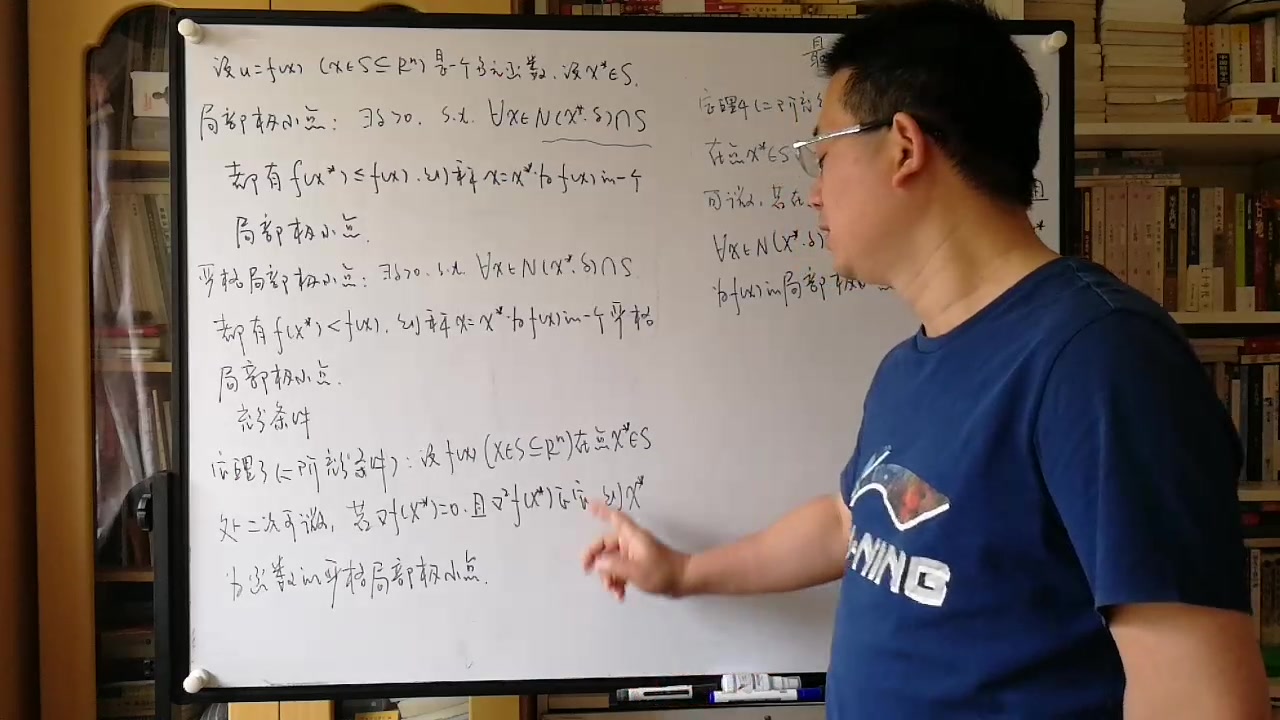 设u=f(x) (x∈S⊆Rⁿ)是一个多元函数,设x*∈S.
局部极小点: ∃δ>0. s.t. ∀x∈N(x*.δ)∩S
都有f(x*)≤f(x).则称x=x*为f(x)的一个
局部极小点.
严格局部极小点: ∃δ>0. s.t. ∀x∈N(x*.δ)∩S
都有f(x*)<f(x).则称x=x*为f(x)的一个严格
局部极小点.
充分条件
定理3(二阶充分条件): 设f(x)(x∈S⊆Rⁿ)在点x*∈S
处二次可微, 若∇f(x*)=0.且∇²f(x*)正定.则x*
为函数的严格局部极小点.
最
定理4(二阶
在点x*∈S
可微, 若在
∀x∈N(x*.δ)
为f(x)的局部极
NING